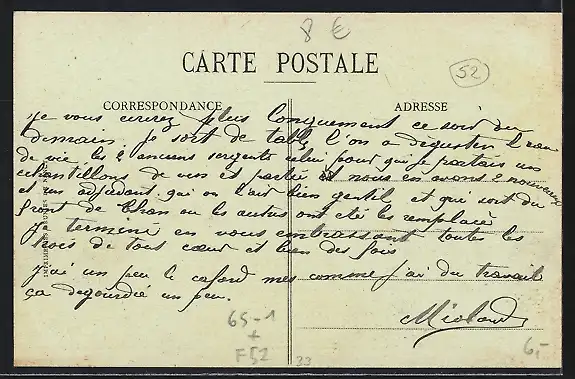 8 €
CARTE POSTALE
52
CORRESPONDANCE
ADRESSE
je vous ecrirez plus longuement ce soir ou
demain. je sort de table l'on a déguster l'eau
de vie, les 2 anciens sergents celui pour qui je portais un
echantillons de vin est partie et nous en avons 2 nouveaux
et un adjudant. qui on l'air bien gentil et qui sort du
front de les autres ont été les remplacé
je termine en vous embrassant toutes les
trois de tout cœur et bien des fois
j'ai un peu le cafard mes comme j'ai du travail
ça degourdie un peu.
65-1
+
F52
33
6,-